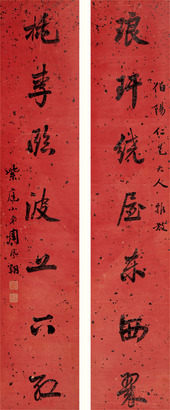 伯陽仁兄大人雅教
琅玕繞屋東西翠
桃李照波上下紅
紫庭小弟周